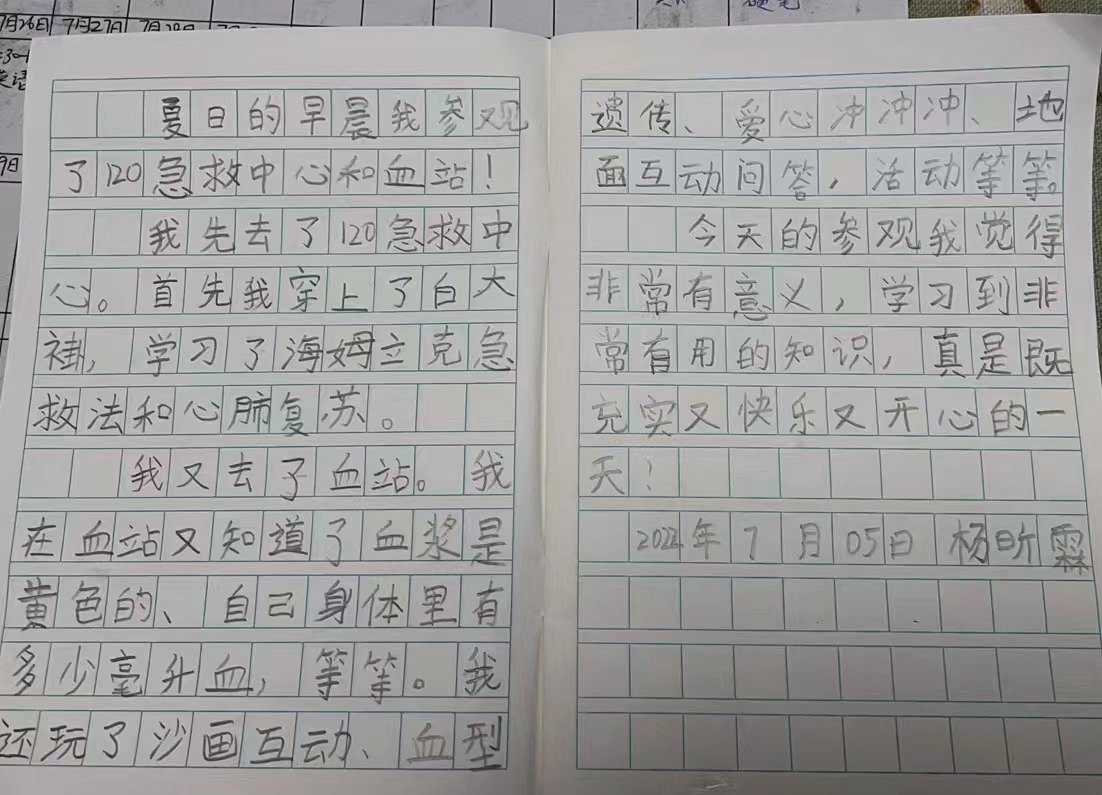 7月26日 7月27日
夏日的早晨我参观
了120急救中心和血站！
我先去了120急救中
心。首先我穿上了白大
褂，学习了海姆立克急
救法和心肺复苏。
我又去了血站。我
在血站又知道了血浆是
黄色的、自己身体里有
多少毫升血，等等。我
还玩了沙画互动、血型
遗传、爱心冲冲冲、地
面互动问答，活动等等。
今天的参观我觉得
非常有意义，学习到非
常有用的知识，真是既
充实又快乐又开心的一
天！
年7月05日 杨昕霖